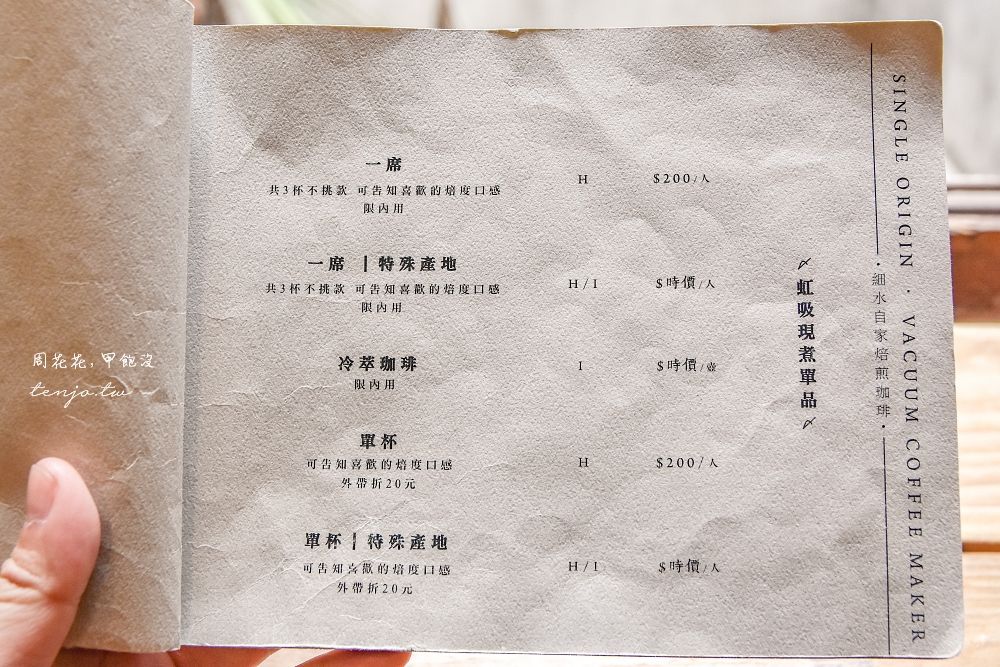 一席
共3杯不挑款 可告知喜歡的焙度口感
限內用
H
$200/人
一席 | 特殊產地
共3杯不挑款 可告知喜歡的焙度口感
限內用
H/I
$時價/人
冷萃珈琲
限內用
I
$時價/壺
單杯
可告知喜歡的焙度口感
外帶折20元
H
$200/人
單杯 | 特殊產地
可告知喜歡的焙度口感
外帶折20元
H/I
$時價/人
虹吸現煮單品
·細水自家焙煎珈琲·
SINGLE ORIGIN · VACUUM COFFEE MAKER
周花花,甲飽沒
tenjo.tw